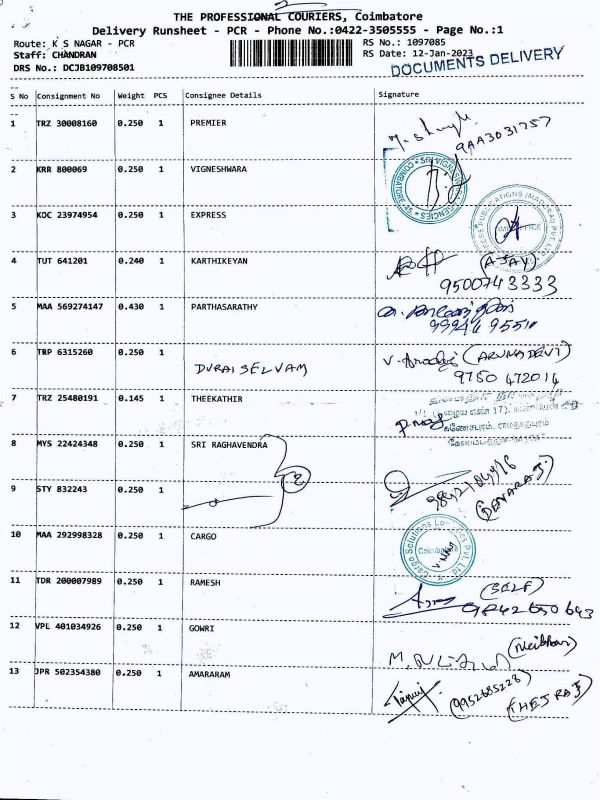 THE PROFESSIONAL COURIERS, Coimbatore
Delivery Runsheet - PCR - Phone No.:0422-3505555 - Page No.:1
Route: K S NAGAR - PCR
RS No.: 1097085
Staff: CHANDRAN
RS Date: 12-Jan-2023
DRS No.: DCJB109708501
DOCUMENTS DELIVERY
S No Consignment No Weight PCS Consignee Details Signature
1 TRZ 30008160 0.250 1 PREMIER
9AA3031757
2 KRR 800069 0.250 1 VIGNESHWARA
3 KOC 23974954 0.250 1 EXPRESS
4 TUT 641201 0.240 1 KARTHIKEYAN (AJAY)
9500743333
5 MAA 569274147 0.430 1 PARTHASARATHY
6 TRP 6315260 0.250 1 DURAISELVAM (ARUNADEVI)
9750 472014
7 TRZ 25480191 0.145 1 THEEKATHIR
8 MYS 22424348 0.250 1 SRI RAGHAVENDRA
2
9 STY 832243 0.250 1
(DEVARAJ.)
10 MAA 292998328 0.250 1 CARGO
Cargo Solutions Logistics Pvt. Ltd.
Coimbatore
11 TDR 200007989 0.250 1 RAMESH (SELF)
9842650643
12 VPL 401034926 0.250 1 GOWRI
13 JPR 502354380 0.250 1 AMARARAM (9952685228)
(THEJRAJ)